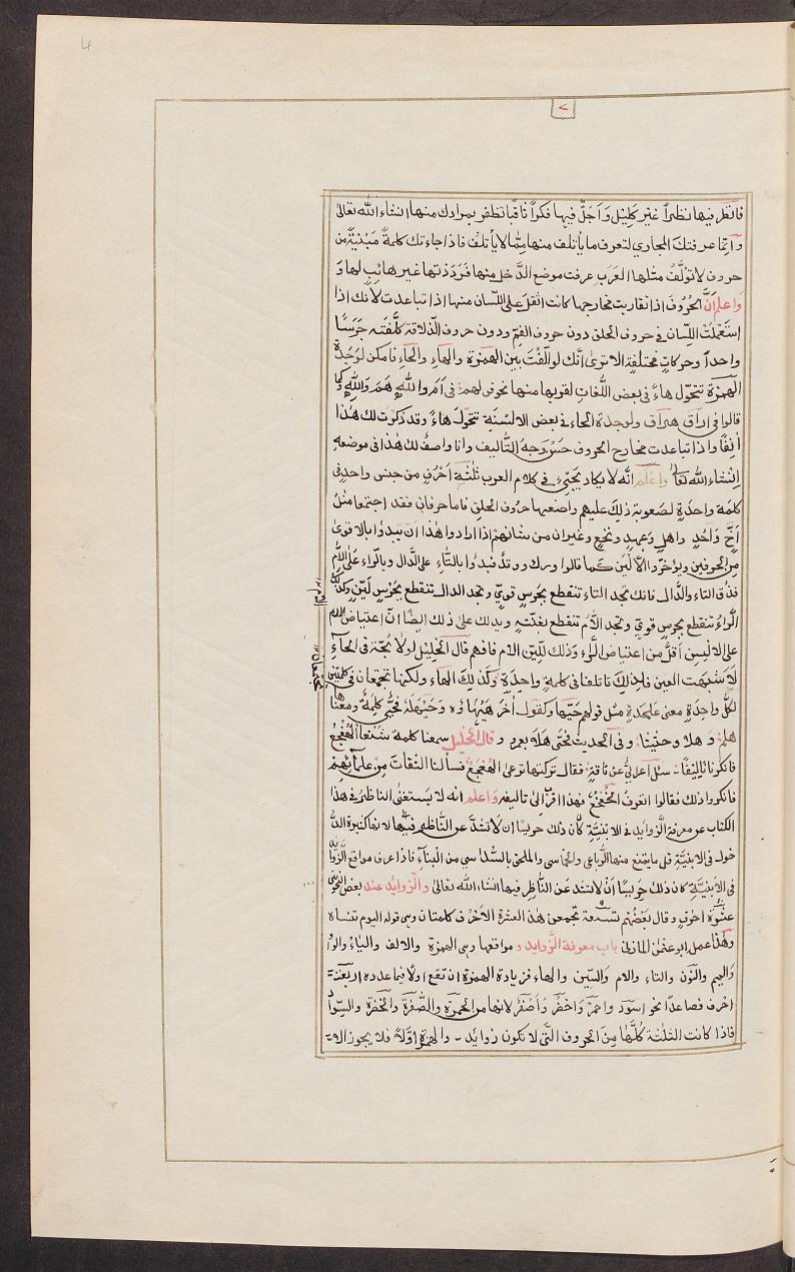 4
٧
فانظر فيها نظراً غير كليل وَاَجِلّ فيها فكراً ثاقباً تظفر بمرادك منها انشاء الله تعالى
وَانّما عرفتك المجاري لتعرف ما يأتلف منها مما لا يأتلف فاذا جاءتك كلمةٌ مَبْنيّةٌ من
حروف لا تؤلّفُ مثلها العرَب عرفت موضع الدَّخل منها فرَدَدْتها غير هائبٍ لها وَ
وَاعلم اَنَّ الحُرُوف اذا تقاربت مخارجها كانت اثقل على اللّسان منها اذا تباعدت لانك اذا
استعملْتَ اللّسان في حروف الحلق دون حروف الفم ودون حروف الذّلاقة كلّفتَه جَرَسًا
واحداً وحركاتٍ مختلفةٍ الا ترى انّك لو الّفتَ بين الهمزة والهاءِ والحاءِ فامكن لوَجدْةَ
الهمزة تتحوّل هاءً في بعض اللّغات لقربها منها نحو قولهم في اَمَ واللهِ هَمَ وَاللهِ وكما
قالوا في اراق هراق ولوجدة الحاء في بعض الالسنَة تتحَّولَ هاءً وقد ذكرت لك هٰذا
اٰنِفًا واذا تباعدت مخارج الحروف حَسُنَ وَجهُ التَّاليف وانا واصفٌ لك هٰذا في موضعه
اِنْشاء الله تعا واعلم انّه لا يكاد يَجيْئ في كلام العرب ثلثَة اَحْرُفٍ من جنس واحدٍ في
كلمَة واحدَةٍ لصعوبة ذلِكَ عليهم واصعبها حرُوف الحلق فاما حرفان فقد اجتمعا مثلُ
اَخٍّ وَاَحُدٍ واهلٍ وعهدٍ ونخعٍ وغير ان من شانهم اذا ارادوا هٰذا ان يبدؤا بالاقوىٰ
مِنَ الحرفين ويؤخّروا الاَليَن كما قالوا ورك ووتدٌ فبدؤا بالتّاءِ على الدّال وبالراء على اللاّم
فذُق التاء والدَّال فانك تجد التاء تنقطع بجرسٍ قويٍّ وتجد الدال تنقطع بجُرْسٍ لَيّنٍ وكذلك
الرّاءُ تنقطع بجرسٍ قويّ وتجد اللاّم تنقطع بغنّةٍ ويدلك على ذلك ايضًا انّ اعتياض اللام
على الالسن اقلّ من اعتياض الرّاء وذلك للين اللام فافهم قال الخليل لولا بُحّة في الحآءِ
لاَشبهَت العين فلذلِكَ لم تاتلفا في كلمةٍ واحِدةٍ وكذ لِكَ الهاء ولكنها تجتمعان في كلمتين
لكلّ واحِدةٍ معنى علىحدةٍ مثل قولهم حَيّهلا ولقول اٰخرَ هَيْهَاؤه وحَيّهَلَهْ فحَيَّ كلمةٌ ومعناها
هلم وهلا وحثيثا وفي الحديث فحيّ هَلاَ بعمر وقال الخليل سمعنا كلمة شنعا الهُعْجعُ
فانكرنا تاليفها سئل اعرابيٌّ عن ناقةٍ فقال تركتها ترعى الهُعْجع فسألنا الثقاتَ مِن علمآئهم
فانكروا ذلك فقالوا نعرفُ الخُعْخعُ فهذا اقربُ الى تاليفه وَاعلم انه لا يَستغنى الناظرُ في هذا
الكتاب عن معرفة الزّوايد في الابنيَّةِ كان ذلك حريًا ان لا تشذّ عن النَّاظر فيْها لانها كثيرة الدُّ
خول في الابنيَّة قل ما يمتنع منها الرُّباعي والخُماسي والملحق بالسّداسي من البناءِ فاذا عرف مواقع الزّوايد
في الاَبنيَّةِ كان ذلك حرِيّا اَنْ لا تشذ عَن النَّاظر فيها انشاء الله تعالى والزّوايدُ عند بعض النّحويين
عشرَة احرفٍ وقال بَعضُهُم تسعة تجمعهن هٰذ العشرة الاَحرف كلمتان وهي قوله اليوم تنساه
وهٰذا عمل ابو عثمن المازني باب معرفة الزّوايد ومواقعها وهي الهمزة والالف والياء والواو
وَالميم والنّون والتاء واللام والسّين والهاء فزيادة الهمزة ان تقع اولاً فيما عدده اربعَة
احرف فصاعداً نحو اسوَد واحمَرَّ وَاخضَرَ وَاصْفرَ لانها من الحُمرَةِ والصُّفرَة والخُضرَةِ والسّوادُ
فاذا كانت الثلثة كلّهَا مِنَ الحروف الّتي لا تكون زوايد - والهمزة اوّلا فلا يجوز الا